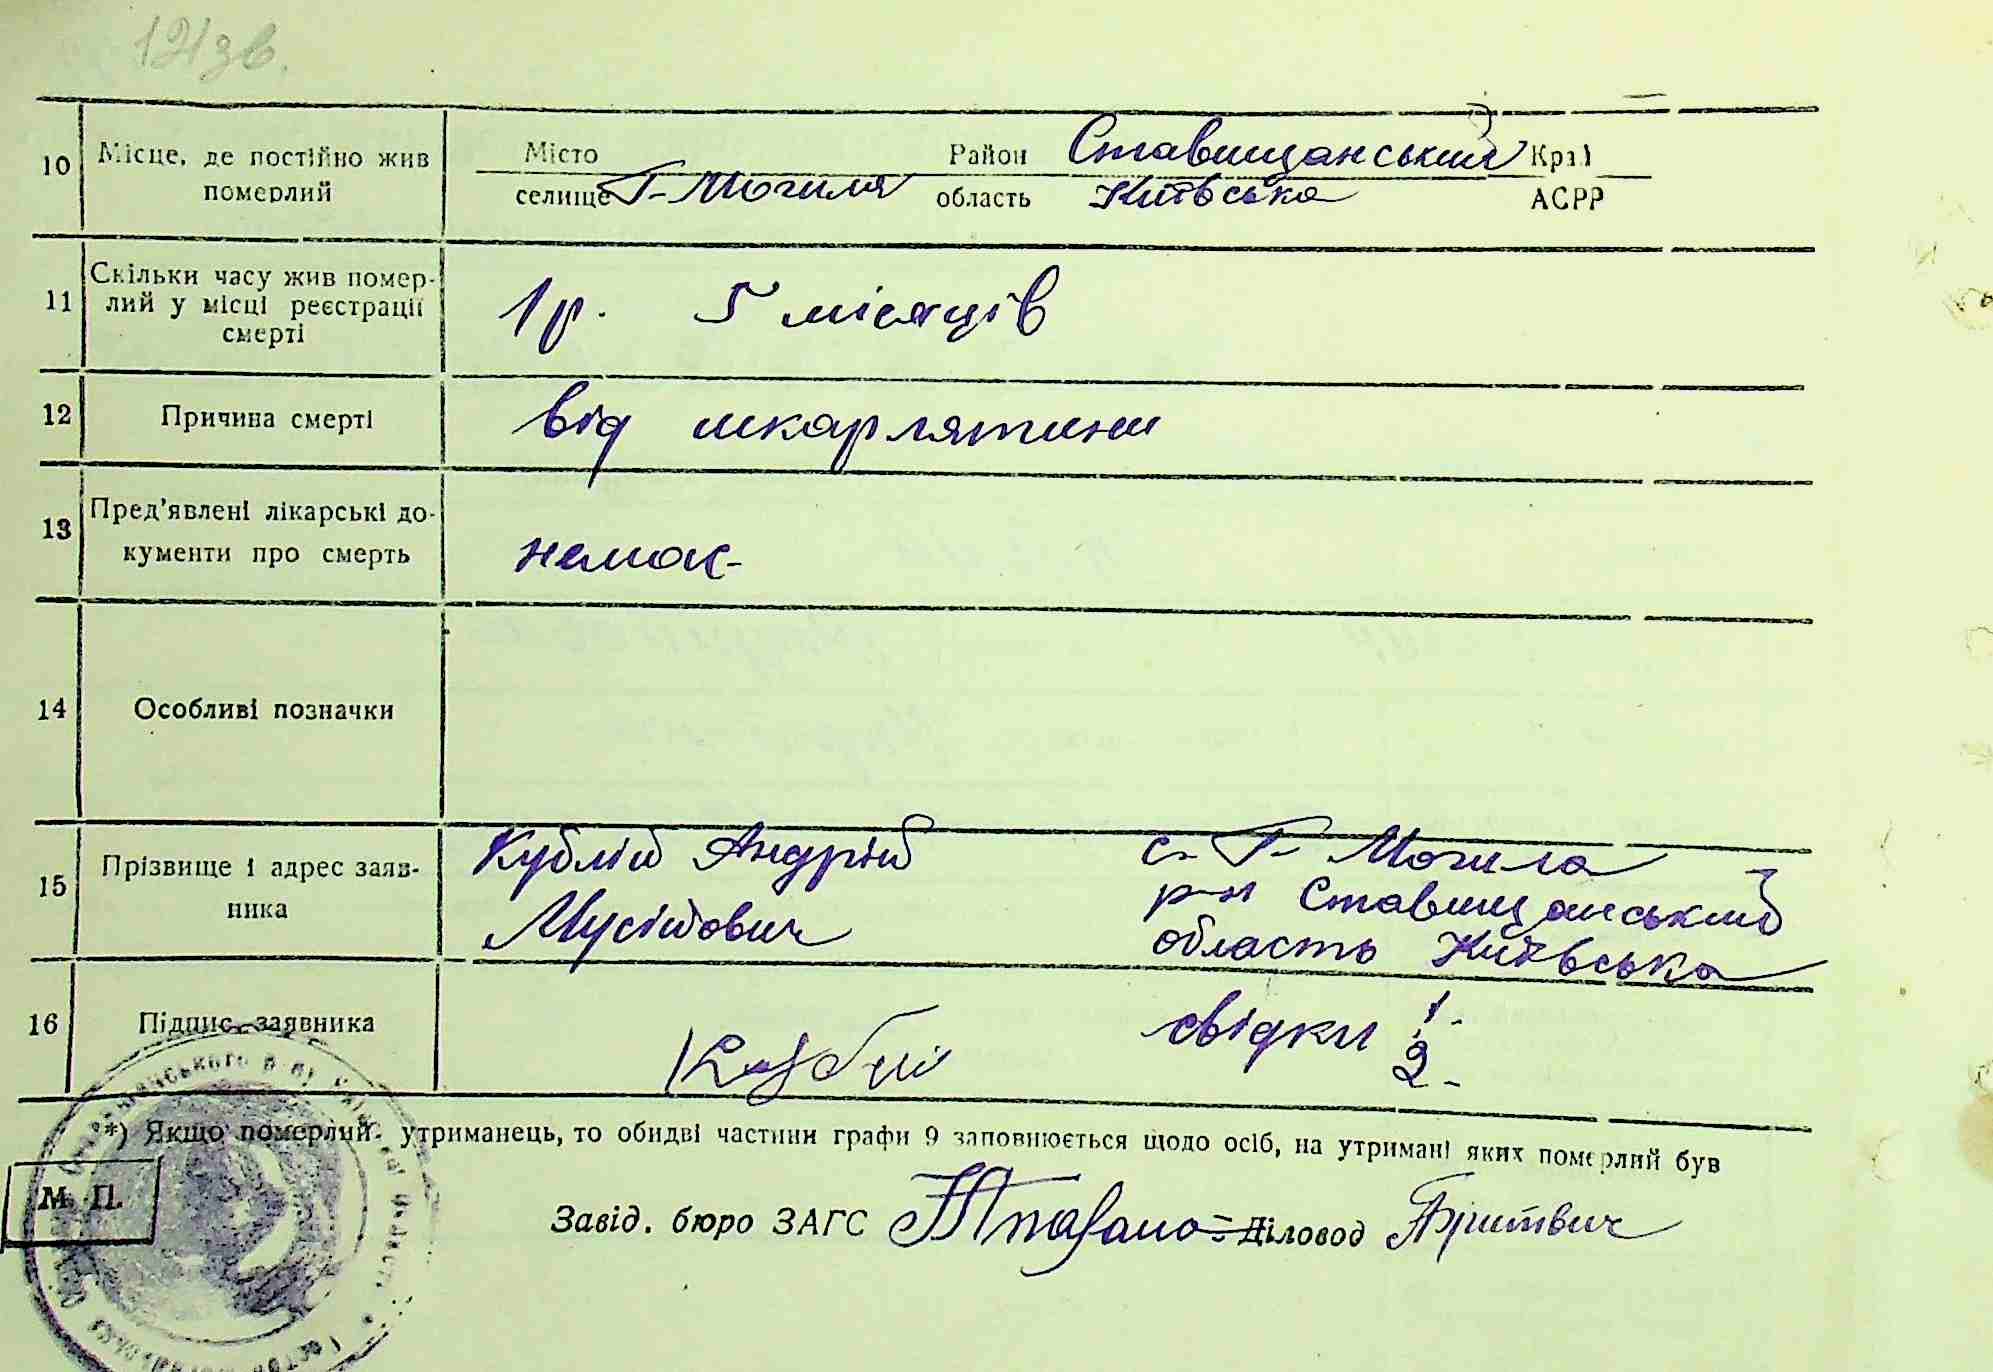 121зв.
10 Місце, де постійно жив померлий
Місто Район Ставищанський Край
селище Г-Могиля область Київська АСРР
11 Скільки часу жив помер-
лий у місці реєстрації
смерті
1 р. 5 місяців
12 Причина смерті від шкарлятини
13 Пред'явлені лікарські до-
кументи про смерть
немає-
14 Особливі позначки
15 Прізвище і адрес заяв-
ника
Кублій Андрій
Мусійович
с. Г- Могила
р-н Ставищанський
область Київська
16 Підпис заявника Кублій свідки 1-
2-
*) Якщо померлий- утриманець, то обидві частини графи 9 заповнюється щодо осіб, на утримані яких померлий був
М. П.
Завід. бюро ЗАГС Діловод